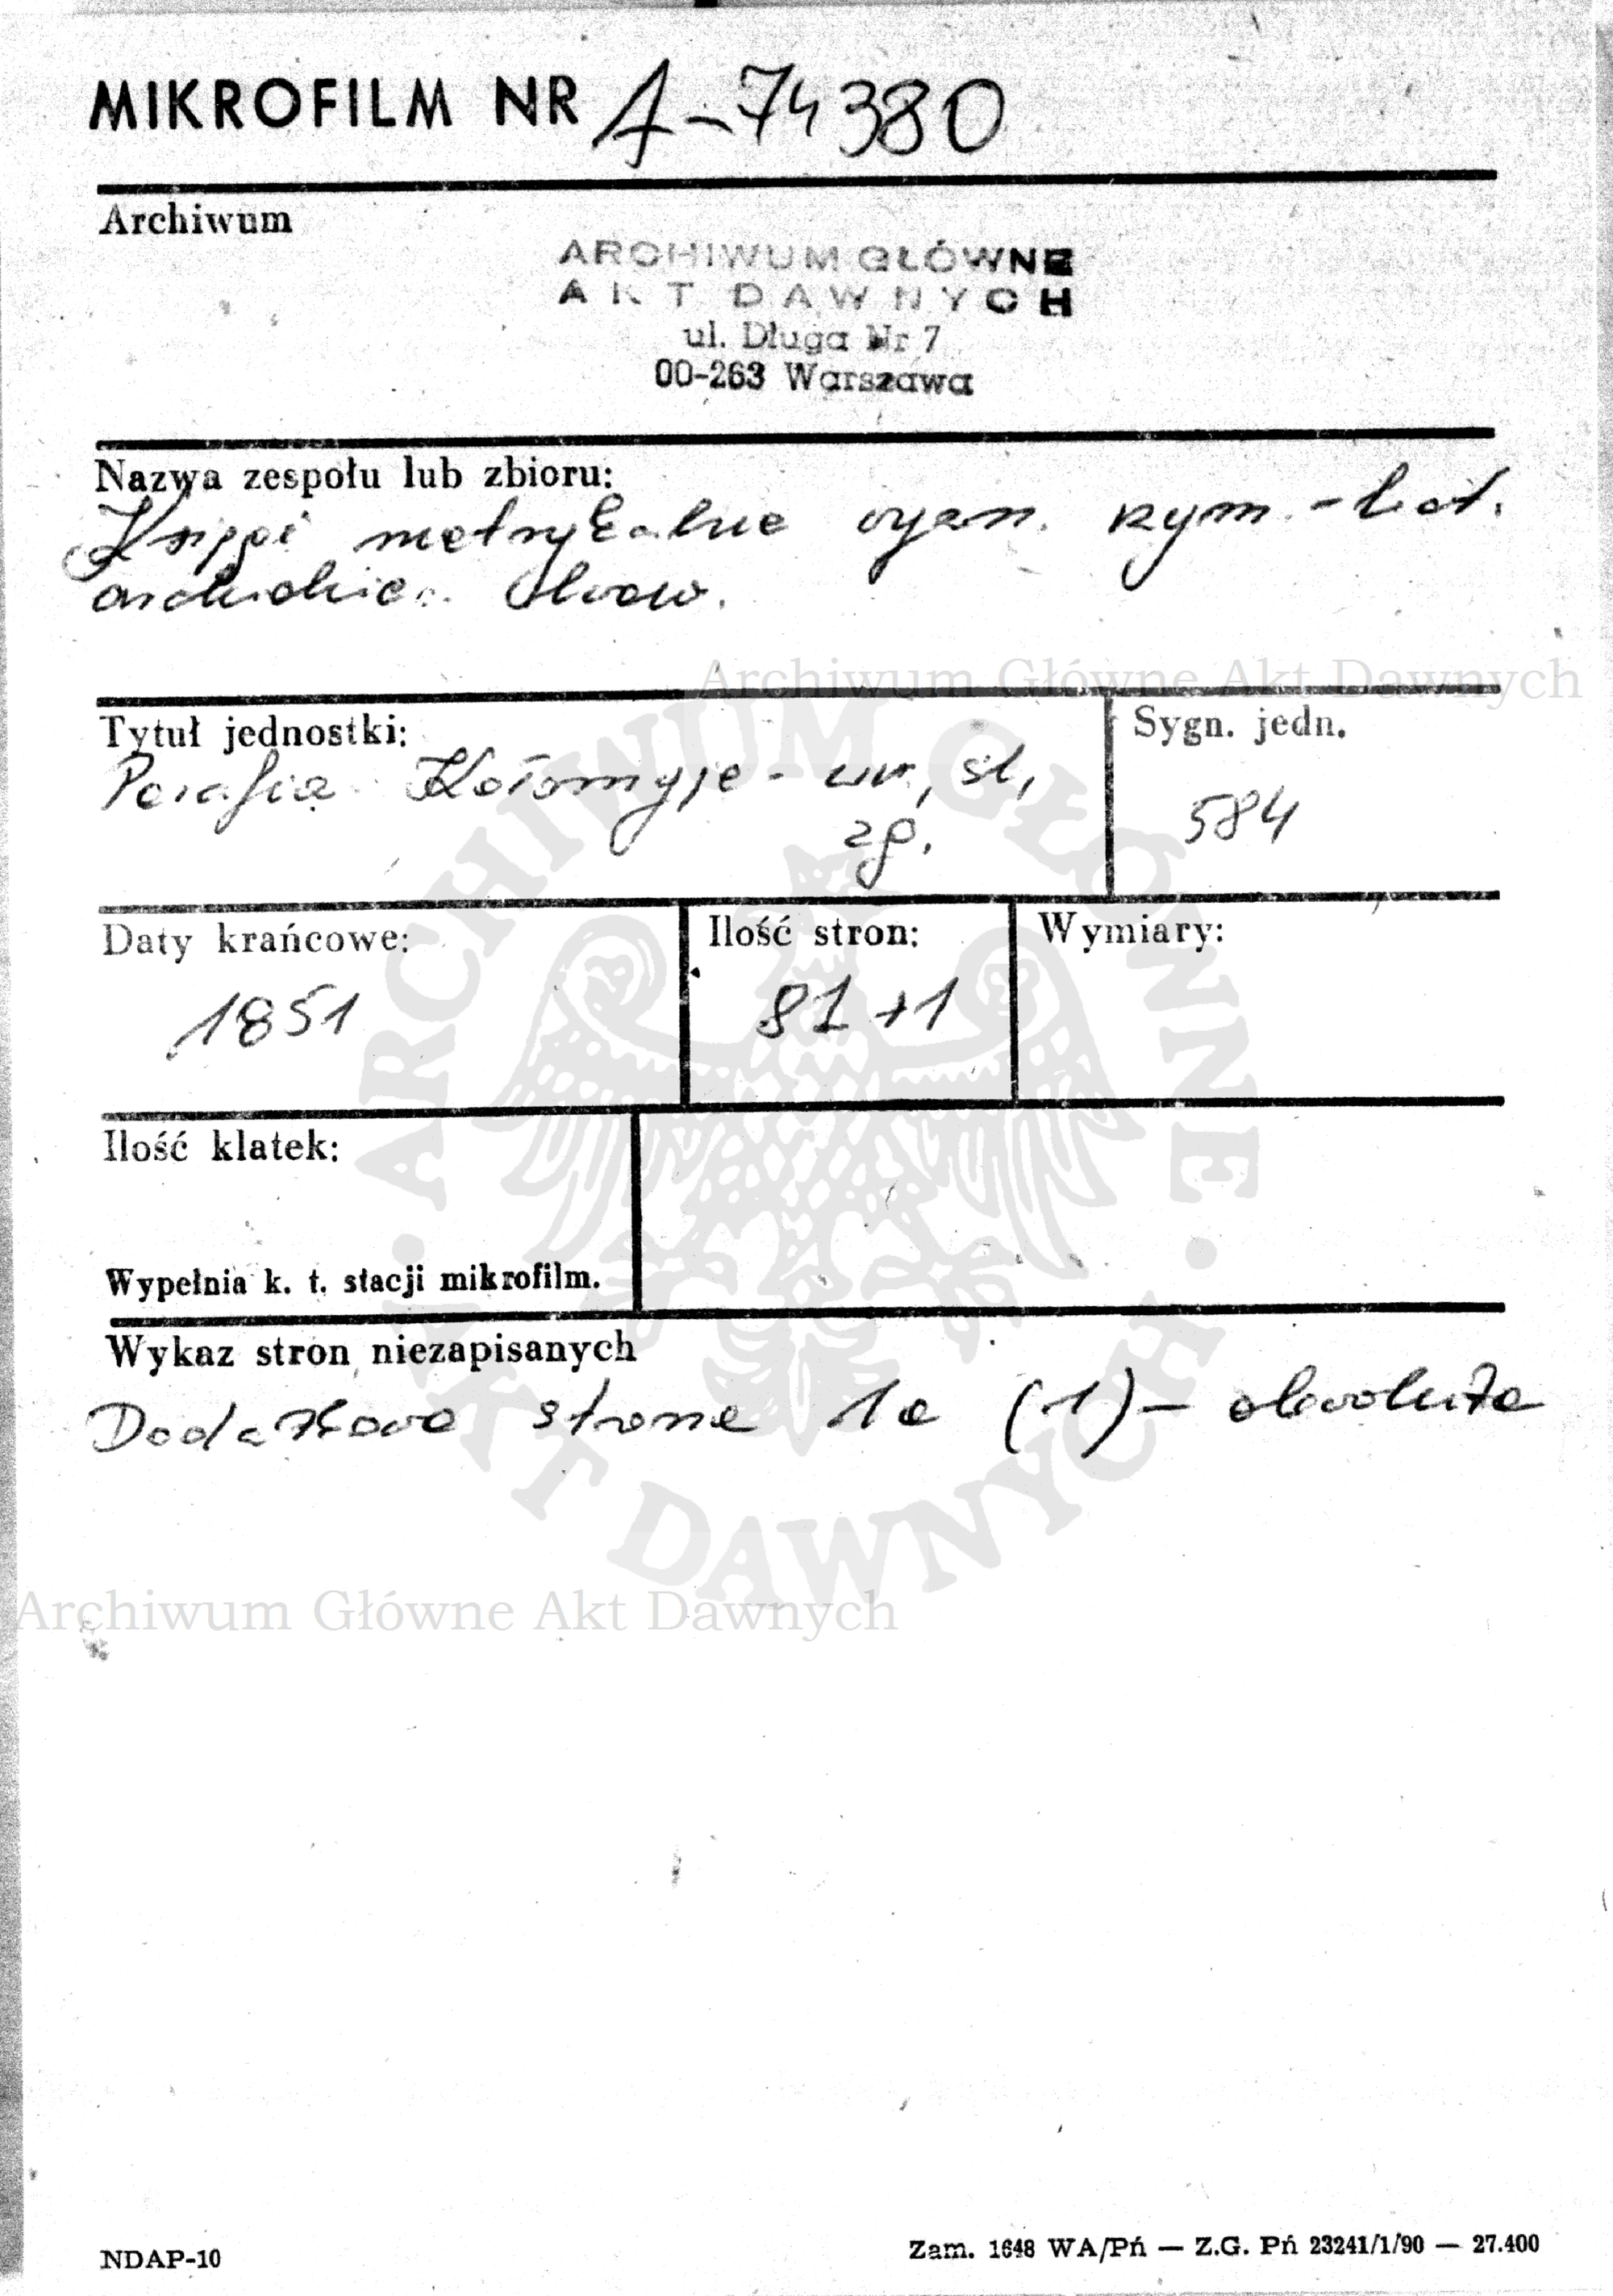 MIKROFILM NR A-74380
Archiwum
ARCHIWUM GŁÓWNE
AKT DAWNYCH
ul. Długa Nr 7
00-263 Warszawa
Nazwa zespołu lub zbioru:
Księgi metrykalne wyzn. rzym.-kat.
archidiec. lwow.
Archiwum Główne Akt Dawnych
Tytuł jednostki:
Parafia Kołomyja - ur, śl,
zg.
Sygn. jedn.
584
Daty krańcowe:
1851
Ilość stron:
81+1
Wymiary:
Ilość klatek:
Wypełnia k. t. stacji mikrofilm.
Wykaz stron niezapisanych
Dodatkowa strona 1a (1)- obwoluta
ARCHIWUM GŁÓWNE
AKT DAWNYCH
Archiwum Główne Akt Dawnych
NDAP-10
Zam. 1648 WA/Pń — Z.G. Pń 23241/1/90 — 27.400